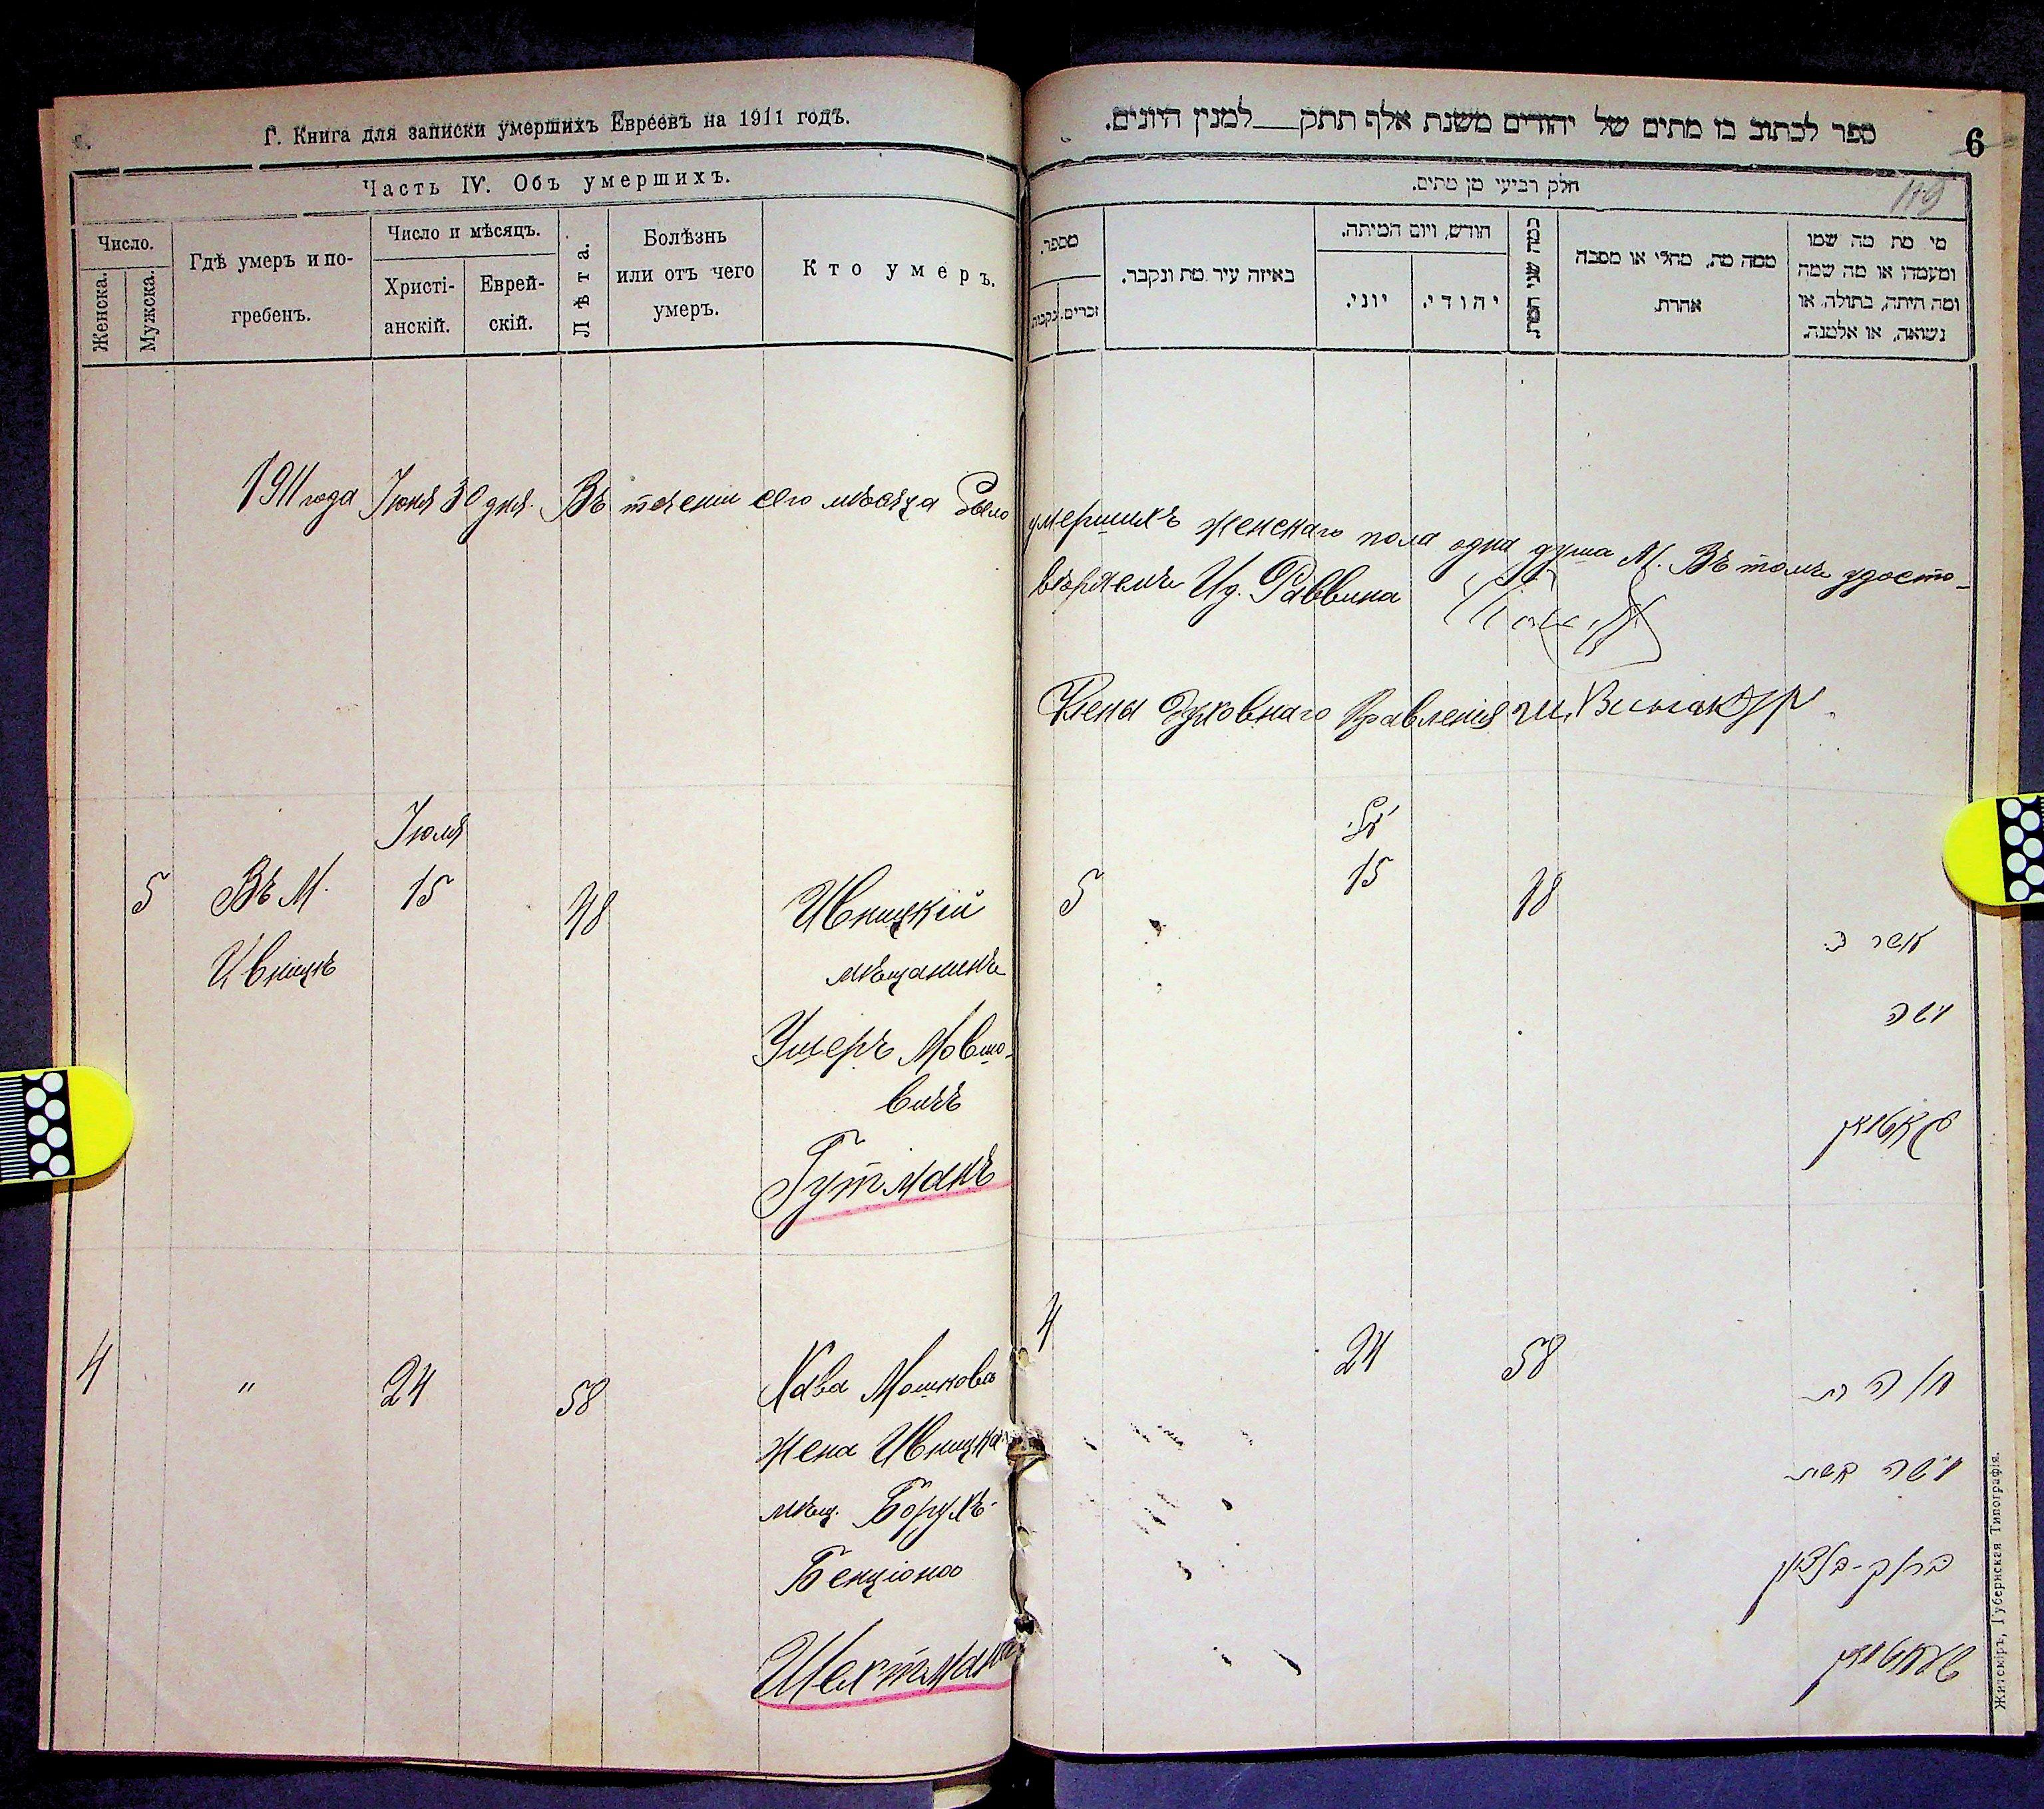 Г. Книга для записки умершихъ Евреевъ на 1911 годъ.
Часть IV. Объ умершихъ.
Число.
Женска.
Мужска.
Гдѣ умеръ и по-
гребенъ.
Число и мѣсяцъ.
Христі-
анскій.
Еврей-
скій.
Лѣта.
Болѣзнь
или отъ чего
умеръ.
Кто умеръ.
1911 года Іюня 30 дня. Въ теченіи сего мѣсяца было
Іюля
5 Въ М. 15 48 Ивницкій
Ивницѣ мѣщанинъ
Ушеръ Мовшо-
вичъ
Гутманъ
4 " 24 58 Хава Мошкова
жена Ивницка
мѣщ. Борухъ-
Бенціона
Шехтмана
ספר לכתוב בו מתים של יהודים משנת אלף תתק למנין היונים.
6
119
חלק רביעי מן מתים.
מספר.
נקבות
זכרים.
באיזה עיר מת ונקבר.
חודש, ויום המיתה.
יוני.
יהודי.
כמה שני המת
ממה מת, מחלי או מסבה
אחרת.
מי מת מה שמו
ומעמדו או מה שמה
ומה היתה, בתולה או
נשואה, או אלמנה.
умершихъ женскаго пола одна душа М. Въ томъ удосто-
вѣряемъ Ид. Раввина
Члены Духовнаго Правленія
5 15 48
אשר ב
משה
גוטמאן
4 24 58
חוה בת
משה אשת
ברוך-בנציון
שעכטמאן
Житоміръ, Губернская Типографія.